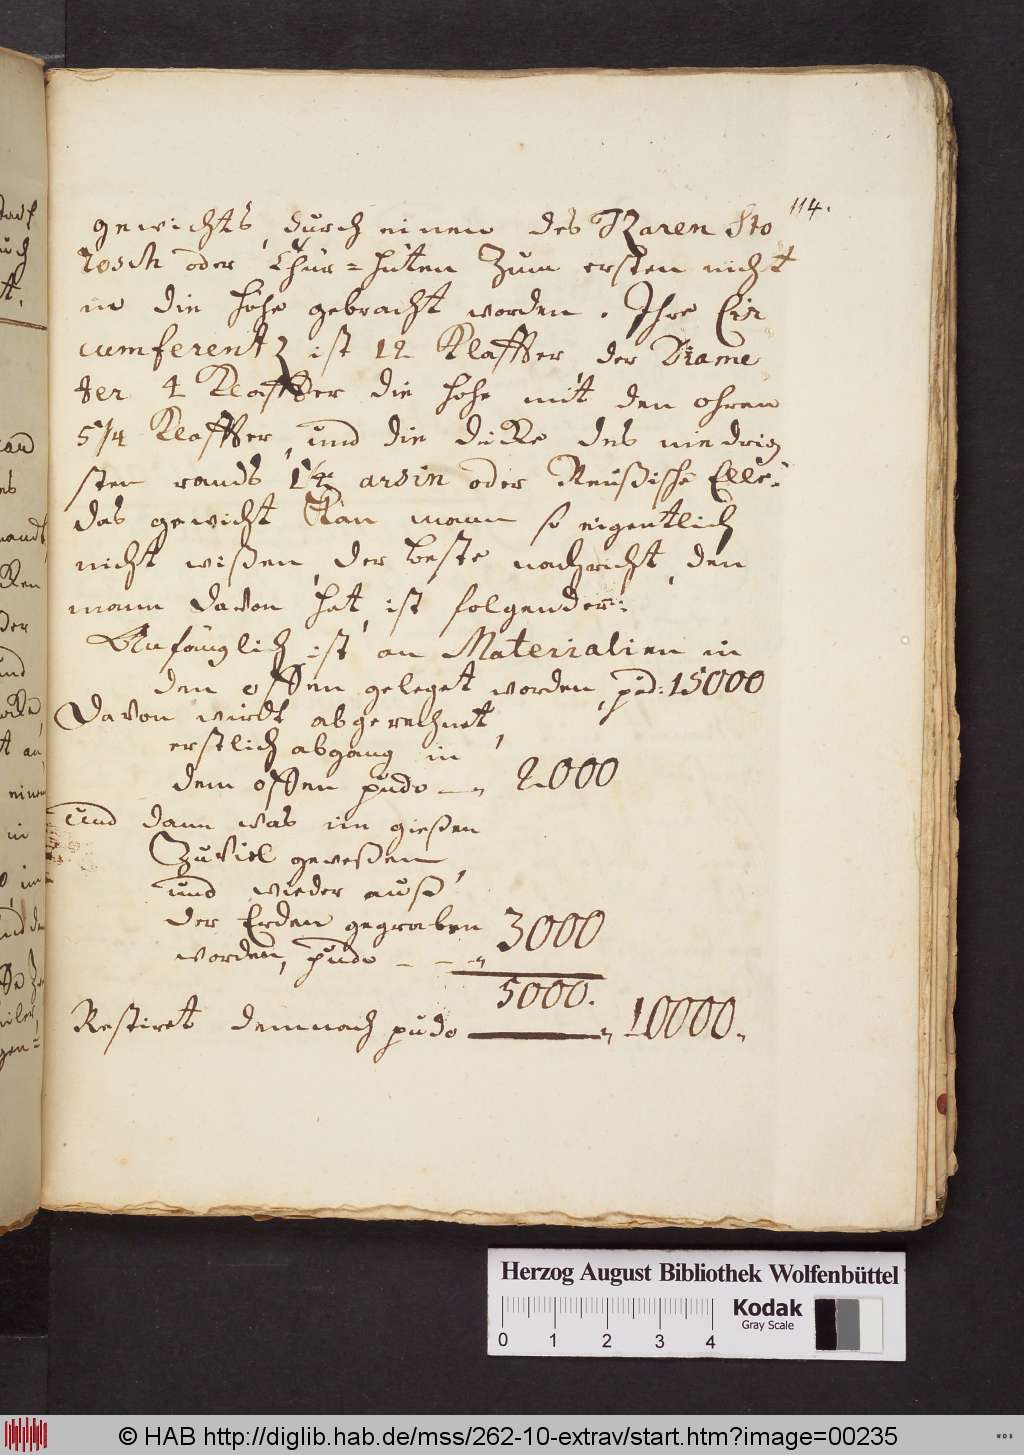 114.
gewichts, durch einen des Zaren Sto
rosch oder Thür=hüten Zum ersten nicht
in die höhe gebracht worden. Ihre Cir
cumferentz ist 12 Klaffter, der Diame
ter 4 Klaffter die höhe mit den ohren
5¼ Klaffter, und die dicke des niedrig
sten rands 1½ arsin oder Reußische Elle:
das gewicht Kan mann so eigentlich
nicht wißen, der beste nachricht, den
mann davon hat, ist folgender:
Anfänglich ist an Materialien in
den offen geleget worden, pud: 15000
Davon wirdt abgerechnet,
erstlich abgang in
dem offen pudo — 2000
Und dann was im gießen
Zuviel geweßen,
und wieder auß
der Erden gegraben
worden, pudo - - - 3000
5000.
Restiret demnach pudo — 10000.
Herzog August Bibliothek Wolfenbüttel
Kodak
Gray Scale
0 1 2 3 4
© HAB http://diglib.hab.de/mss/262-10-extrav/start.htm?image=00235